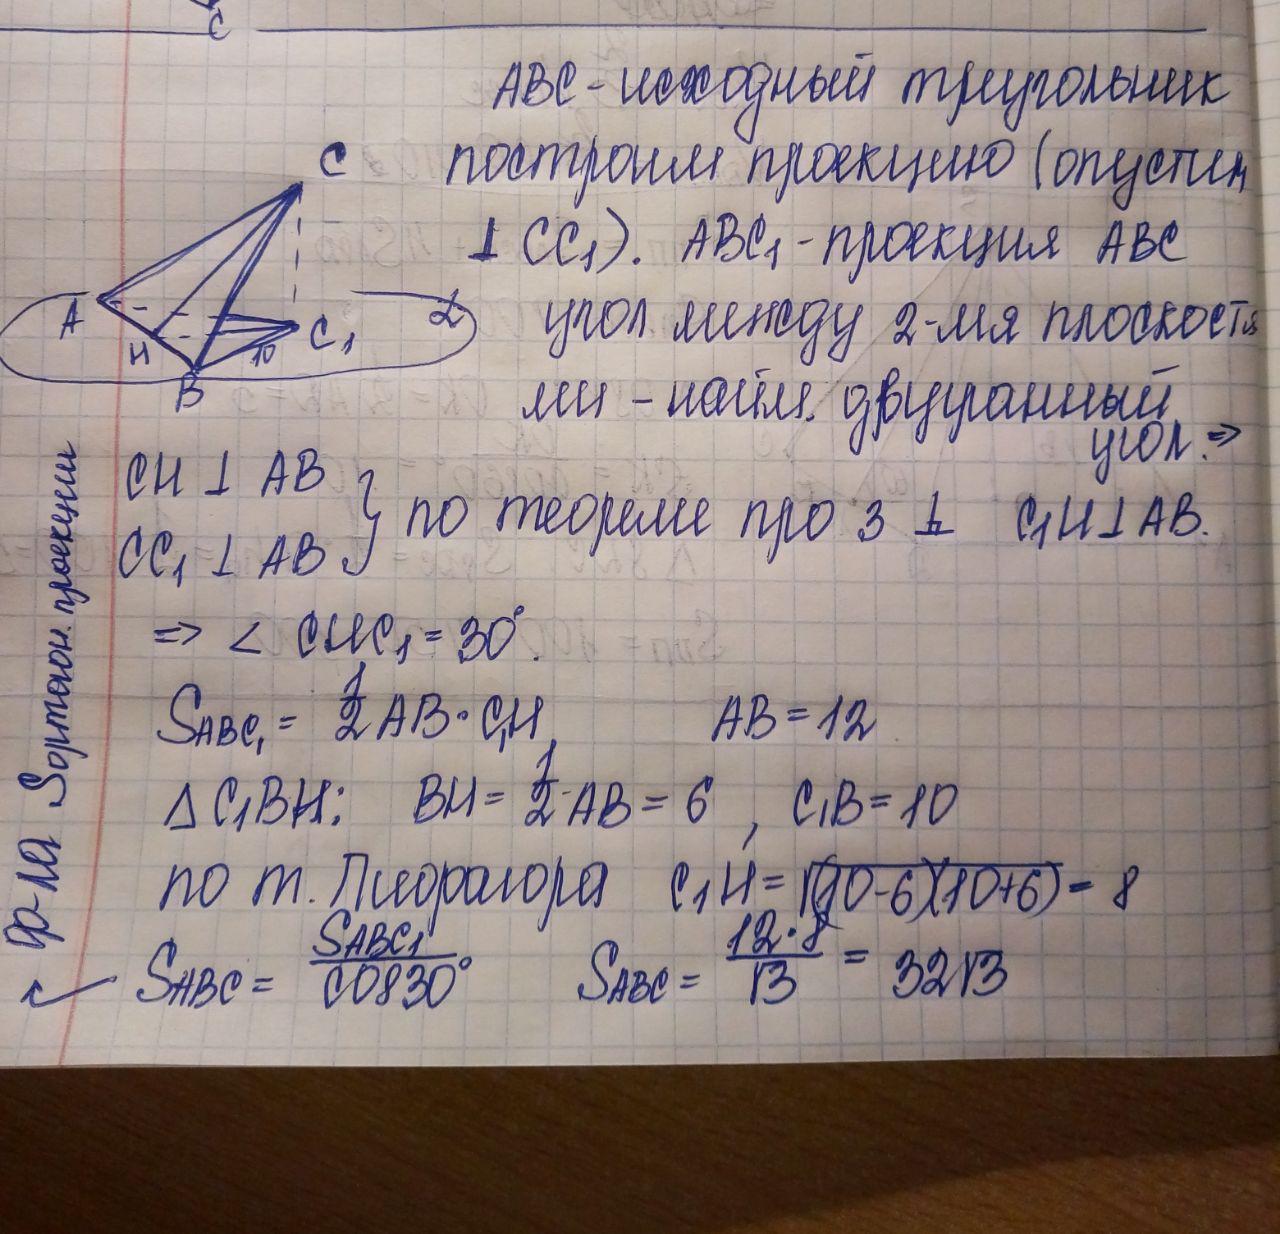 C
ABC - исходный треугольник
построим проекцию (опустим
⊥ CC₁). ABC₁ - проекция ABC
угол между 2-мя плоскостя
ми - найм. двугранный
угол. ⇒
C
A
H
B
10
C₁
α
CH ⊥ AB
CC₁ ⊥ AB } по теореме про 3 ⊥ C₁H ⊥ AB.
⇒ ∠ CHC₁ = 30°.
S_ABC₁ = 1/2 AB · C₁H, AB = 12
Δ C₁BH: BH = 1/2 · AB = 6, C₁B = 10
по т. Пифагора C₁H = √(10-6)(10+6) = 8
S_ABC = S_ABC₁ / cos30° S_ABC = 12·8 / √3 = 32√3
ф-ла S ортогон. проекции